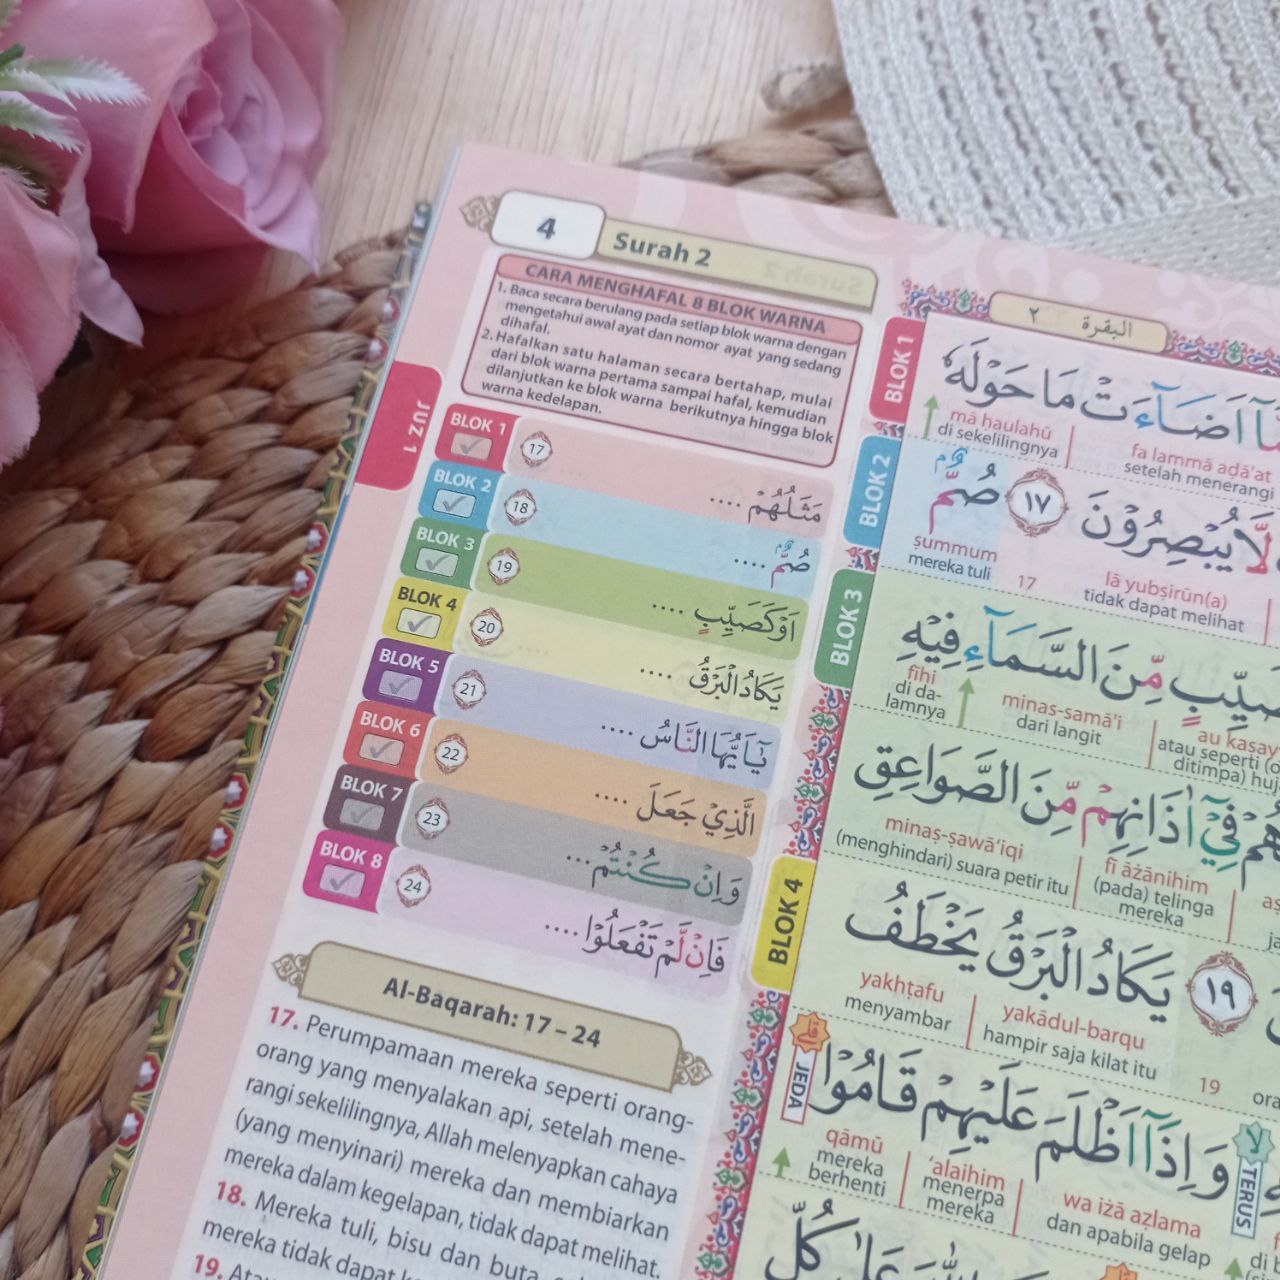 4
Surah 2
CARA MENGHAFAL 8 BLOK WARNA
1. Baca secara berulang pada setiap blok warna dengan
mengetahui awal ayat dan nomor ayat yang sedang
dihafal.
2. Hafalkan satu halaman secara bertahap, mulai
dari blok warna pertama sampai hafal, kemudian
dilanjutkan ke blok warna berikutnya hingga blok
warna kedelapan.
JUZ 1
BLOK 1 17 مَثَلُهُمْ ....
BLOK 2 18 صُمٌّ ....
BLOK 3 19 اَوْ كَصَيِّبٍ ....
BLOK 4 20 يَكَادُ الْبَرْقُ ....
BLOK 5 21 يٰٓاَيُّهَا النَّاسُ ....
BLOK 6 22 الَّذِيْ جَعَلَ ....
BLOK 7 23 وَاِنْ كُنْتُمْ ...
BLOK 8 24 فَاِنْ لَّمْ تَفْعَلُوْا ....
Al-Baqarah: 17 – 24
17. Perumpamaan mereka seperti orang-
orang yang menyalakan api, setelah mene-
rangi sekelilingnya, Allah melenyapkan cahaya
(yang menyinari) mereka dan membiarkan
mereka dalam kegelapan, tidak dapat melihat.
18. Mereka tuli, bisu dan buta,
mereka tidak dapat
19. Atau
البقرة ٢
BLOK 1
اَضَاۤءَتْ مَا حَوْلَهٗ
fa lammā aḍā'at mā ḥaulahū
setelah menerangi di sekelilingnya
BLOK 2
لَّا يُبْصِرُوْنَ ١٧ صُمٌّ
lā yubṣirūn(a) 17 ṣummum
tidak dapat melihat mereka tuli
BLOK 3
مِّنَ السَّمَاۤءِ فِيْهِ
au kaṣay minas-samā'i fīhi
atau seperti (o dari langit di da-
ditimpa) huj lamnya
فِيْٓ اٰذَانِهِمْ مِّنَ الصَّوَاعِقِ
fī āżānihim minaṣ-ṣawā‘iqi
(pada) telinga (menghindari) suara petir itu
mereka
BLOK 4
١٩ يَكَادُ الْبَرْقُ يَخْطَفُ
19 yakādul-barqu yakhṭafu
hampir saja kilat itu menyambar
وَاِذَآ اَظْلَمَ عَلَيْهِمْ قَامُوْا
TERUS JEDA
wa iżā aẓlama ‘alaihim qāmū
dan apabila gelap menerpa mereka
mereka berhenti
كُلِّ